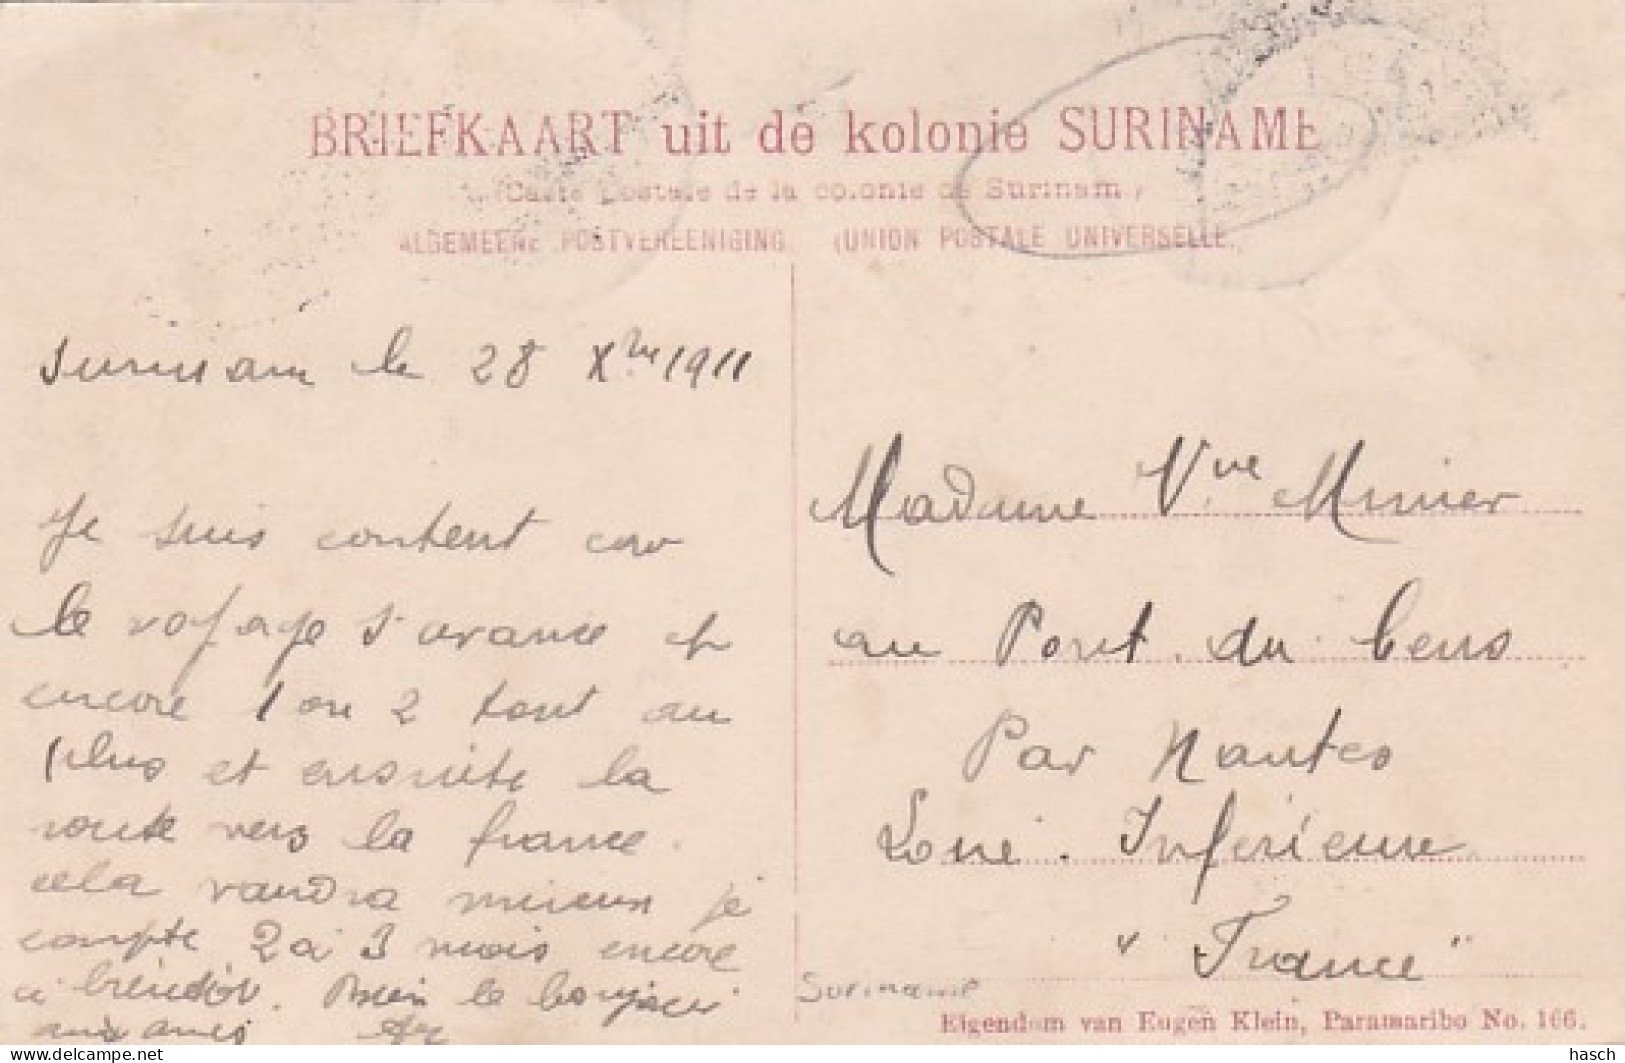 BRIEFKAART uit de kolonie SURINAME
(Carte Postale de la colonie de Surinam.)
ALGEMEENE POSTVEREENIGING (UNION POSTALE UNIVERSELLE.)
Surinam le 28 Xbre 1911
Je suis content car
le voyage s'avance et
encore 1 ou 2 tout au
plus et ensuite la
route vers la france.
cela vaudra mieux je
compte 2 à 3 mois encore
à bientôt. Bien le bonjour
aux amis
Madame Vve Minier
au Pont du Cens
Par Nantes
Loire Inférieure
"France"
Suriname
Eigendom van Eugen Klein, Paramaribo No. 166.
hasch